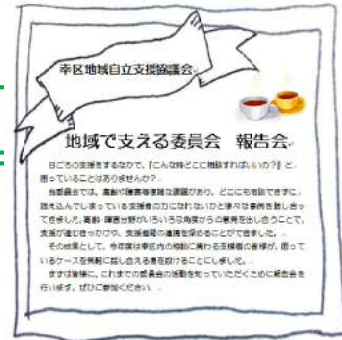 幸区地域自立支援協議会
地域で支える委員会 報告会
日ごろの支援をするなかで、『こんな時どこに相談すればいいの？』と
困っていることはありませんか？
当委員会では、高齢や障害等複雑な課題があり、どこにも相談できずに
抱え込んでしまっている支援者の力になれないかと様々な事例を話し合っ
てきました。高齢・障害分野がいろいろな角度からの意見を出し合うことで、
支援が進むきっかけや、支援者間の連携を深めることができました。
その成果として、今年度は幸区内の相談に携わる支援者の皆様が、困って
いるケースを気軽に話し合える場を設けることにしました。
まずは皆様に、これまでの委員会の活動を知っていただくために報告会を
行います。ぜひご参加ください。